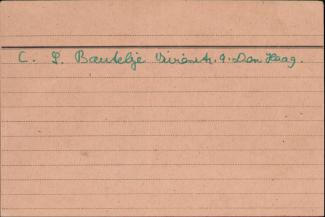 C. L. Boutelje Vivienstr. 9. Den Haag.